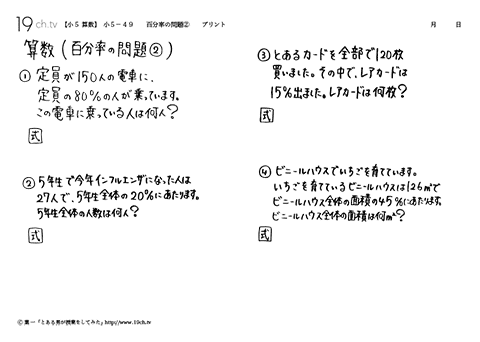 19ch.tv 【小5 算数】 小5-49 百分率の問題② プリント 月 日
算数(百分率の問題②)
① 定員が150人の電車に、
定員の80%の人が乗っています。
この電車に乗っている人は何人?
式
② 5年生で今年インフルエンザになった人は
27人で、5年生全体の20%にあたります。
5年生全体の人数は何人?
式
③ とあるカードを全部で120枚
買いました。その中で、レアカードは
15%出ました。レアカードは何枚?
式
④ ビニールハウスでいちごを育てています。
いちごを育てているビニールハウスは126㎡で
ビニールハウス全体の面積の45%にあたります。
ビニールハウス全体の面積は何㎡?
式
Ⓒ葉一「とある男が授業をしてみた」http://www.19ch.tv